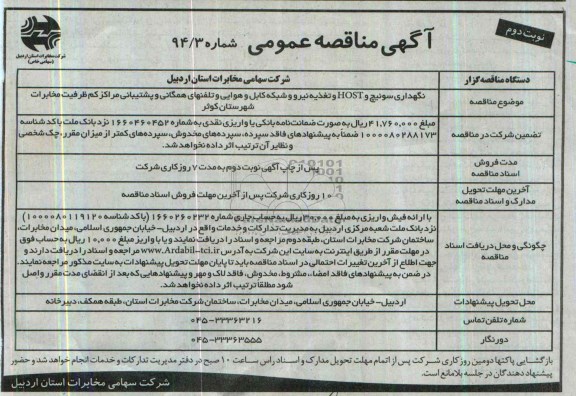 نوبت دوم
آگهی مناقصه عمومی شماره ۹۴/۳
شرکت مخابرات استان اردبیل
(سهامی خاص)
دستگاه مناقصه گزار
شرکت سهامی مخابرات استان اردبیل
موضوع مناقصه
نگهداری سوئیچ و HOST و تغذیه نیرو و شبکه کابل و هوایی و تلفنهای همگانی و پشتیبانی مراکز کم ظرفیت مخابرات
شهرستان کوثر
تضمین شرکت در مناقصه
مبلغ ۴۱,۷۶۰,۰۰۰ ریال به صورت ضمانت نامه بانکی یا واریزی نقدی به شماره ۱۶۶۰۴۶۰۴۵۲ نزد بانک ملت با کد شناسه
۱۰۰۰۰۸۰۲۸۸۱۷۳ ضمناً به پیشنهادهای فاقد سپرده، سپرده های مخدوش، سپرده های کمتر از میزان مقرر، چک شخصی
و نظایر آن ترتیب اثر داده نخواهد شد.
مدت فروش
اسناد مناقصه
پس از چاپ آگهی نوبت دوم به مدت ۷ روز کاری شرکت
آخرین مهلت تحویل
مدارک و اسناد مناقصه
۱۰ روز کاری شرکت پس از آخرین مهلت فروش اسناد مناقصه
چگونگی و محل دریافت اسناد
مناقصه
با ارائه فیش واریزی به مبلغ ۳۰۰,۰۰۰ ریال به حساب جاری شماره ۱۶۶۰۲۶۰۲۳۲ (با کد شناسه ۱۰۰۰۰۸۰۱۱۹۱۲۰)
نزد بانک ملت شعبه مرکزی اردبیل به مدیریت تدارکات و خدمات واقع در اردبیل- خیابان جمهوری اسلامی، میدان مخابرات،
ساختمان شرکت مخابرات استان، طبقه دوم مراجعه و اسناد را دریافت نمایند و یا با واریز مبلغ ۱۰,۰۰۰ ریال به حساب فوق
در مهلت مقرر از طریق اینترنت به سایت این شرکت به آدرس www.Ardabil-tci.ir مراجعه و اسناد را دریافت دارند و
جهت اطلاع از آخرین تغییرات احتمالی در اسناد مناقصه باید تا پایان مهلت تحویل پیشنهادات به سایت مذکور مراجعه نمایند.
در ضمن به پیشنهادهای فاقد امضاء، مشروط، مخدوش، فاقد لاک و مهر و پیشنهادهایی که بعد از انقضای مدت مقرر واصل
شود مطلقا ترتیب اثر داده نخواهد شد.
محل تحویل پیشنهادات
اردبیل- خیابان جمهوری اسلامی، میدان مخابرات، ساختمان شرکت مخابرات استان، طبقه همکف، دبیرخانه
شماره تلفن تماس
۰۴۵-۳۳۳۶۳۲۱۶
دورنگار
۰۴۵-۳۳۳۶۳۵۵۵
بازگشایی پاکتها دومین روز کاری شرکت پس از اتمام مهلت تحویل مدارک و اسناد راس ساعت ۱۰ صبح در دفتر مدیریت تدارکات و خدمات انجام خواهد شد و حضور
پیشنهاد دهندگان در جلسه بلامانع است.
شرکت سهامی مخابرات استان اردبیل